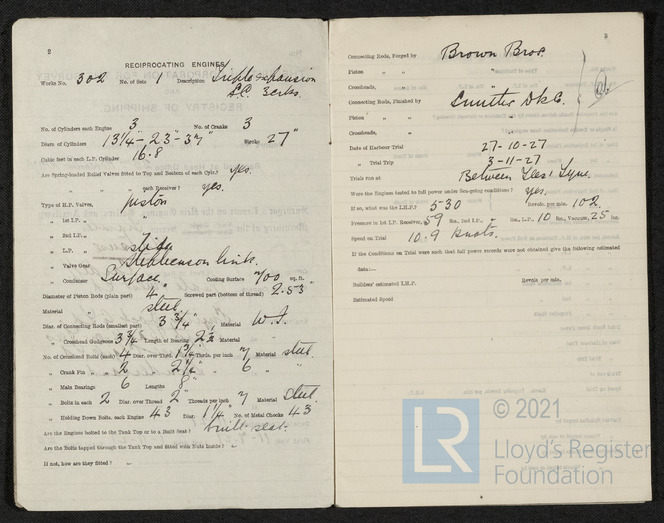 2
RECIPROCATING ENGINES
Works No. 302 No. of Sets 1 Description Triple Expansion
S.C. 3 Crks.
No. of Cylinders each Engine 3 No. of Cranks 3
Diars of Cylinders 13¼ - 23" - 37" Stroke 27"
Cubic feet in each L.P. Cylinder 16.8
Are Spring-loaded Relief Valves fitted to Top and Bottom of each Cylr.? yes.
" " " each Receiver? yes.
Type of H.P. Valves, piston
" 1st I.P. "
" 2nd I.P. "
" L.P. " slide
" Valve Gear Stephenson link.
" Condenser Surface. Cooling Surface 700 sq. ft.
Diameter of Piston Rods (plain part) 4" Screwed part (bottom of thread) 2.53"
Material steel.
Diar. of Connecting Rods (smallest part) 3¾" Material W.I.
" Crosshead Gudgeons 3¾ Length of Bearing Material
No. of Crosshead Bolts (each) 4 Diar. over Thrd. 1¼" Thrds. per inch 7 Material steel.
" Crank Pin " 2 " 2¼" " 6 " "
" Main Bearings 6 Lengths 8"
" Bolts in each 2 Diar. over Thread 2" Threads per inch 7 Material steel.
" Holding Down Bolts, each Engine 43 Diar. 1¼" No. of Metal Chocks 43
Are the Engines bolted to the Tank Top or to a Built Seat? built seat.
Are the Bolts tapped through the Tank Top and fitted with Nuts Inside? -
If not, how are they fitted? -
3
Connecting Rods, Forged by Brown Bros.
Piston " "
Crossheads, "
Connecting Rods, Finished by Smiths Dk Co.
Piston " "
Crossheads, "
Date of Harbour Trial 27-10-27
" Trial Trip 3-11-27
Trials run at Between Tees & Tyne.
Were the Engines tested to full power under Sea-going conditions? yes.
If so, what was the I.H.P.? 530 Revols. per min. 102
Pressure in 1st I.P. Receiver, 59 lbs., 2nd I.P., lbs., L.P. 10 lbs., Vacuum, 25 ins.
Speed on Trial 10.9 knots.
If the Conditions on Trial were such that full power records were not obtained give the following estimated
data:—
Builders' estimated I.H.P. Revols per min.
Estimated Speed
LR
© 2021
Lloyd's Register
Foundation